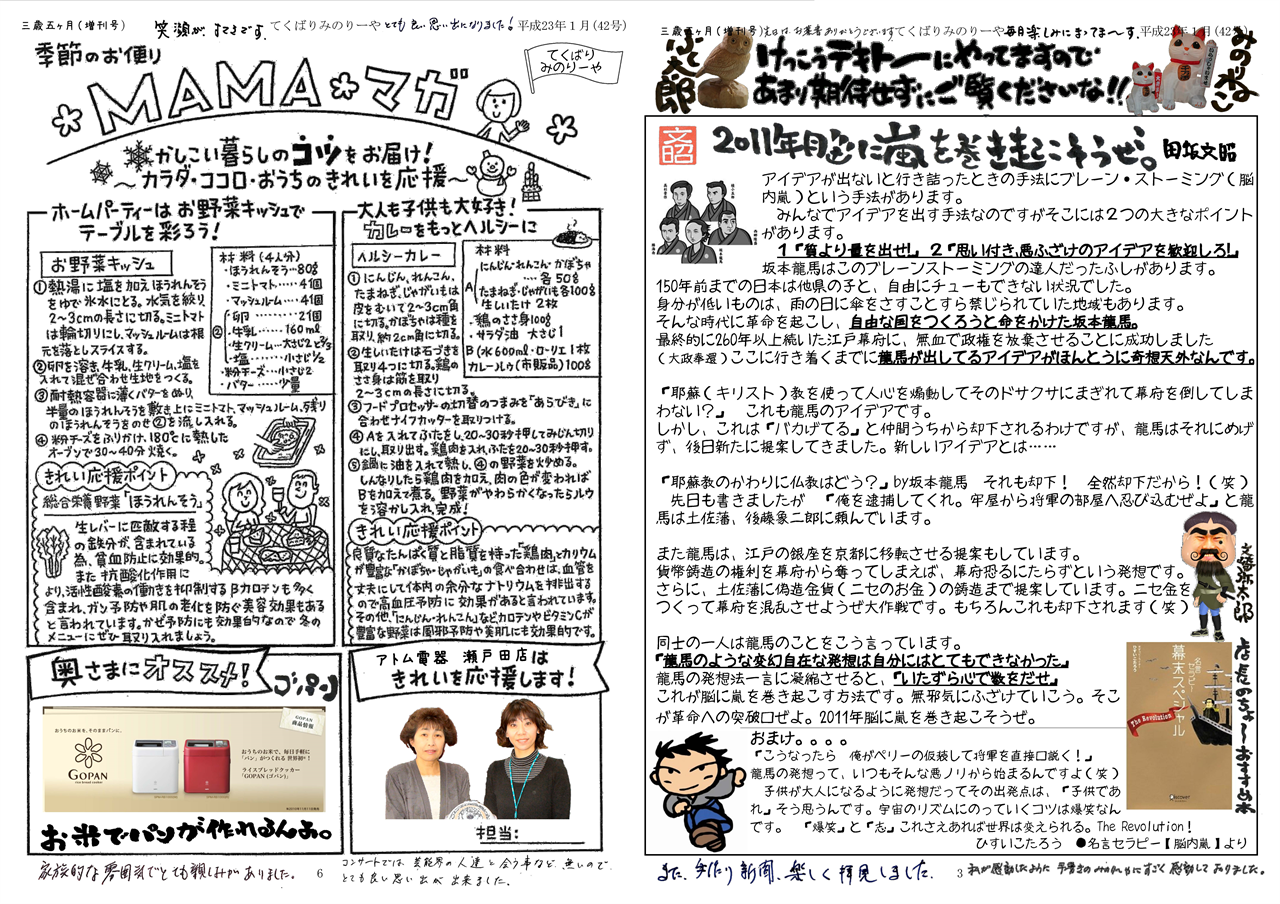 三歳五ヶ月(増刊号)
笑顔が すてきです。
てくばりみのりーや
とても良い思い出になりました!
平成23年1月(42号)
季節のお便り
てくばり
みのりーや
MAMA*マガ
かしこい暮らしのコツをお届け!
~カラダ・ココロ・おうちのきれいを応援~
ホームパーティーはお野菜キッシュで
テーブルを彩ろう!
お野菜キッシュ
①熱湯に塩を加えほうれんそう
をゆで氷水にとる。水気を絞り、
2~3cmの長さに切る。ミニトマト
は輪切りにし、マッシュルームは根
元を落としスライスする。
②卵を溶き、牛乳、生クリーム、塩を
入れて混ぜ合わせ生地をつくる。
③耐熱容器に薄くバターをぬり、
半量のほうれんそうを敷き上にミニトマト、マッシュルーム、残り
のほうれんそうをのせ②を流し入れる。
④粉チーズをふりかけ、180℃に熱した
オーブンで30~40分焼く。
材料(4人分)
・ほうれんそう…80g
・ミニトマト……4個
・マッシュルーム…4個
②
・卵………2個
・牛乳……160ml
・生クリーム…大さじ2と2/3
・塩………小さじ1/2
・粉チーズ…小さじ2
・バター……少量
きれい応援ポイント
総合栄養野菜「ほうれんそう」
生レバーに匹敵する程
の鉄分が、含まれている
為、貧血防止に効果的。
また抗酸化作用に
より、活性酸素の働きを抑制するβカロチンも多く
含まれ、ガン予防や肌の老化を防ぐ美容効果もある
と言われています。かぜ予防にも効果的なので冬の
メニューにぜひ取り入れましょう。
大人も子供も大好き!
カレーをもっとヘルシーに
ヘルシーカレー
①にんじん、れんこん、
たまねぎ、じゃがいもは
皮をむいて2~3cm角
に切る。かぼちゃは種を
取り、約2cm角に切る。
②生しいたけは石づきを
取り4つに切る。鶏の
ささ身は筋を取り
2~3cmの長さに切る。
③フードプロセッサーの切替のつまみを「あらびき」に
合わせナイフカッターを取りつける。
④Aを入れてふたをし、20~30秒押してみじん切り
にし、取り出す。鶏肉を入れ、ふたを20~30秒押す。
⑤鍋に油を入れて熱し、④の野菜を炒める。
しんなりしたら鶏肉を加え、肉の色が変われば
Bを加えて煮る。野菜がやわらかくなったらルウ
を溶かし入れ、完成!
材料
A
にんじん・れんこん・かぼちゃ
…各50g
たまねぎ・じゃがいも各100g
生しいたけ2枚
・鶏のささ身100g
・サラダ油 大さじ1
B(水600ml・ローリエ1枚
カレールゥ(市販品)100g
きれい応援ポイント
良質なたんぱく質と脂質を持った「鶏肉」とカリウム
が豊富な「かぼちゃ・じゃがいも」の食べ合わせは、血管を
丈夫にして体内の余分なナトリウムを排出する
ので高血圧予防に効果があると言われています。
その他、「にんじん・れんこん」などカロテンやビタミンCが
豊富な野菜は風邪予防や美肌にも効果的です。
奥さまにオススメ!
ゴパン
GOPAN
商品情報
おうちのお米を、そのままパンに。
GOPAN
おうちのお米で、毎日手軽に
「パン」がつくれる 世界初
ライスブレッドクッカー
「GOPAN(ゴパン)」
お米でパンが作れるんよ。
アトム電器 瀬戸田店は
きれいを応援します!
担当:
家族的な雰囲気でとても親しみがありました。
6
コンサートでは、芸能界の人達と会う事など、無いので、
とても良い思い出が出来ました。
三歳五ヶ月(増刊号)
てくばりみのりーや
毎月楽しみにまってま~す。
平成23年1月(42号)
ふて太郎
けっこうテキトーにやってますので
あまり期待せずにご覧くださいな!!
みのりのネこ
文昭
2011年脳に嵐を巻き起こそうぜ。
田坂文昭
アイデアが出ないと行き詰ったときの手法にブレーン・ストーミング(脳
内嵐)という手法があります。
みんなでアイデアを出す手法なのですがそこには2つの大きなポイント
があります。
1『質より量を出せ!』 2『思い付き、悪ふざけのアイデアを歓迎しろ!』
坂本龍馬はこのブレーンストーミングの達人だったふしがあります。
150年前までの日本は他県の子と、自由にチューもできない状況でした。
身分が低いものは、雨の日に傘をさすことすら禁じられていた地域もあります。
そんな時代に革命を起こし、自由な国をつくろうと命をかけた坂本龍馬。
最終的に260年以上続いた江戸幕府に、無血で政権を放棄させることに成功しました
(大政奉還)ここに行き着くまでに龍馬が出してるアイデアがほんとうに奇想天外なんです。
『耶蘇(キリスト)教を使って人心を煽動してそのドサクサにまぎれて幕府を倒してしま
わない?』 これも龍馬のアイデアです。
しかし、これは『バカげてる』と仲間うちから却下されるわけですが、龍馬はそれにめげ
ず、後日新たに提案してきました。新しいアイデアとは……
『耶蘇教のかわりに仏教はどう?』by坂本龍馬 それも却下! 全然却下だから!(笑)
先日も書きましたが 『俺を逮捕してくれ。牢屋から将軍の部屋へ忍び込むぜよ』と龍
馬は土佐藩、後藤象二郎に頼んでいます。
また龍馬は、江戸の銀座を京都に移転させる提案もしています。
貨幣鋳造の権利を幕府から奪ってしまえば、幕府恐るにたらずという発想です。
さらに、土佐藩に偽造金貨(ニセのお金)の鋳造まで提案しています。ニセ金を
つくって幕府を混乱させようぜ大作戦です。もちろんこれも却下されます(笑)
同士の一人は龍馬のことをこう言っています。
『龍馬のような変幻自在な発想は自分にはとてもできなかった。』
龍馬の発想法一言に凝縮させると、『いたずら心で数をだせ』
これが脳に嵐を巻き起こす方法です。無邪気にふざけていこう。そこ
が革命への突破口ぜよ。2011年脳に嵐を巻き起こそうぜ。
店長のちょ~おすすめ本
名言セラピー
幕末スペシャル
The Revolution!
おまけ。。。。
『こうなったら 俺がペリーの仮装して将軍を直接口説く!』
龍馬の発想って、いつもそんな悪ノリから始まるんですよ(笑)
子供が大人になるように発想だってその出発点は、『子供であ
れ』そう思うんです。宇宙のリズムにのっていくコツは爆笑なん
です。 『爆笑』と『志』これさえあれば世界は変えられる。The Revolution!
ひすいこたろう ●名言セラピー【脳内嵐】より
また、手作り新聞、楽しく拝見しました。
3